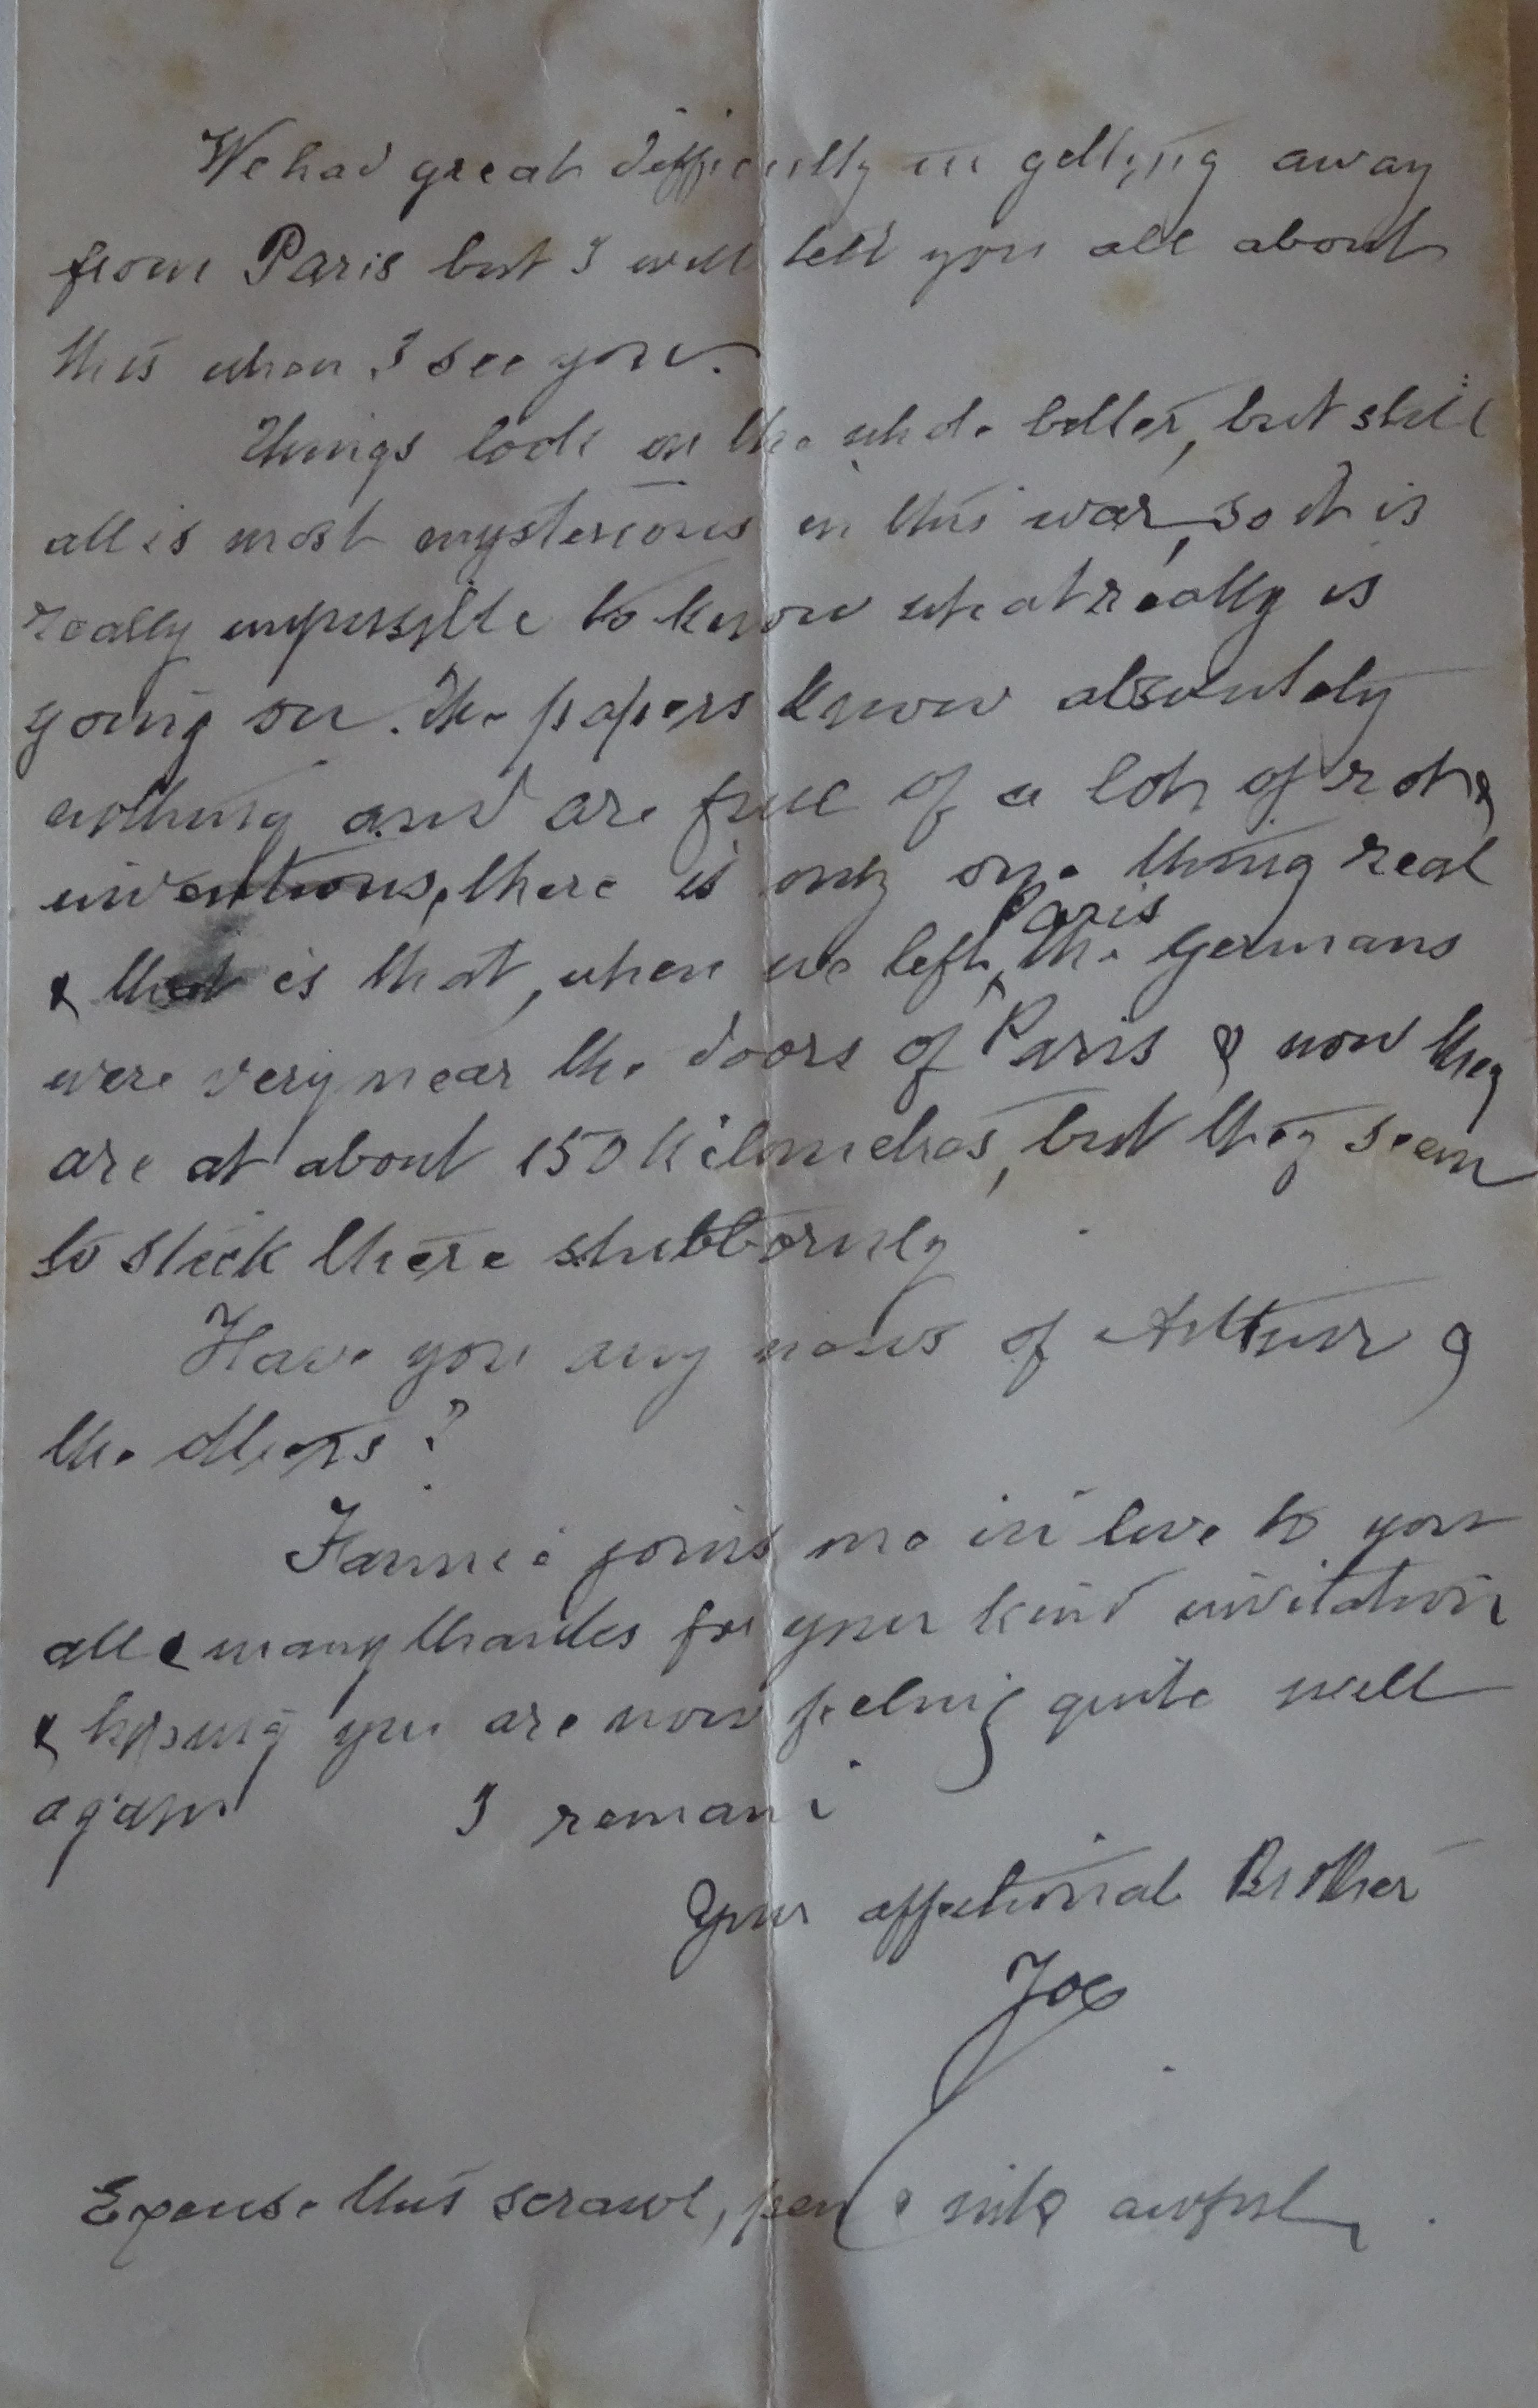 We had great difficulty in getting away
from Paris but I will tell you all about
this when I see you.
Things look on the whole better, but still
all is most mysterious in this war, so it is
really impossible to know what really is
going on. The papers know absolutely
nothing and are full of a lot of rot &
inventions, there is only one thing real
Paris
& that is that, when we left ^ the Germans
were very near the doors of Paris & now they
are at about 150 Kilometres, but they seem
to stick there stubbornly
Have you any news of Arthur &
the others?
Fannie joins me in love to you
all & many thanks for your kind invitation
& hoping you are now feeling quite well
again I remain
Your affectionate Brother
Joe
Excuse this scrawl, pen & ink awful.